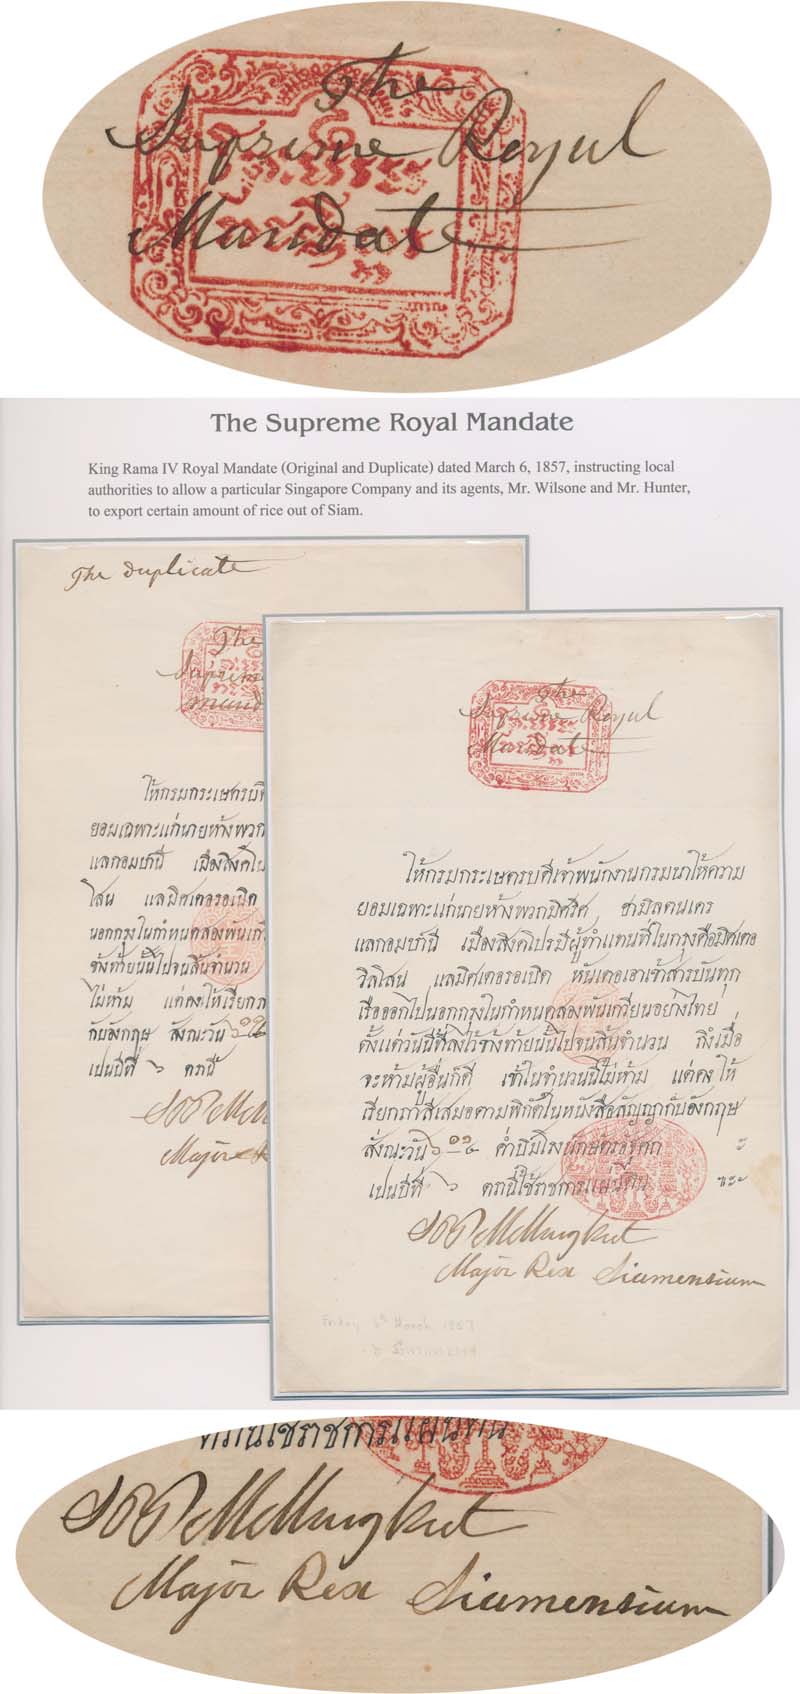 The
Supreme Royal
Mandate
The Supreme Royal Mandate
King Rama IV Royal Mandate (Original and Duplicate) dated March 6, 1857, instructing local
authorities to allow a particular Singapore Company and its agents, Mr. Wilsone and Mr. Hunter,
to export certain amount of rice out of Siam.
The Duplicate
The
Supreme
Mand
ให้กรมกระเษตรบดี
ยอมเฉพาะแก่นายห้างพวก
แลกอมปานี เมืองสิงคโป
โสน แลมิศเตอรอเบิด
นอกกรุงในกำหนดสองพันเกวี
ข้างท้ายนั้นไปจนสิ้นจำนวน
ไม่ห้าม แต่คงให้เรียกภ
กับอังกฤษ สั่งณะวัน
เปนปีที่ ๖ ดกนี้
Major
The
Supreme Royal
Mandate
ให้กรมกระเษตรบดีเจ้าพนักงานกรมนาให้ความ
ยอมเฉพาะแก่นายห้างพวกมิศริศ ฮามิลตนเกร
แลกอมปานี เมืองสิงคโปรมีผู้ทำแทนที่ในกรุงคือมิศเตอ
วิลโสน แลมิศเตอรอเบิด หันเตอเอาเข้าสารบันทุก
เรือออกไปนอกกรุงในกำหนดสองพันเกวียนอย่างไทย
ตั้งแต่วันนี้ที่ลงไว้ข้างท้ายนั้นไปจนสิ้นจำนวน ถึงเมื่อ
จะห้ามผู้อื่นก็ดี เข้าในจำนวนนี้ไม่ห้าม แต่คงให้
เรียกภาสีเสมอตามพิกัดในหนังสือสัญญากับอังกฤษ
สั่งณะวัน ๖ ๑๑ ๔ ค่ำปีมโรงนักษัตรอัฐศก
เปนปีที่ ๖ ดกนี้ใช้ราชการแผ่นดิน
SPPM Mongkut
Major Rex Siamensium
Friday 6th March 1857
ดกนี้ใช้ราชการแผ่นดิน
SPPM Mongkut
Major Rex Siamensium